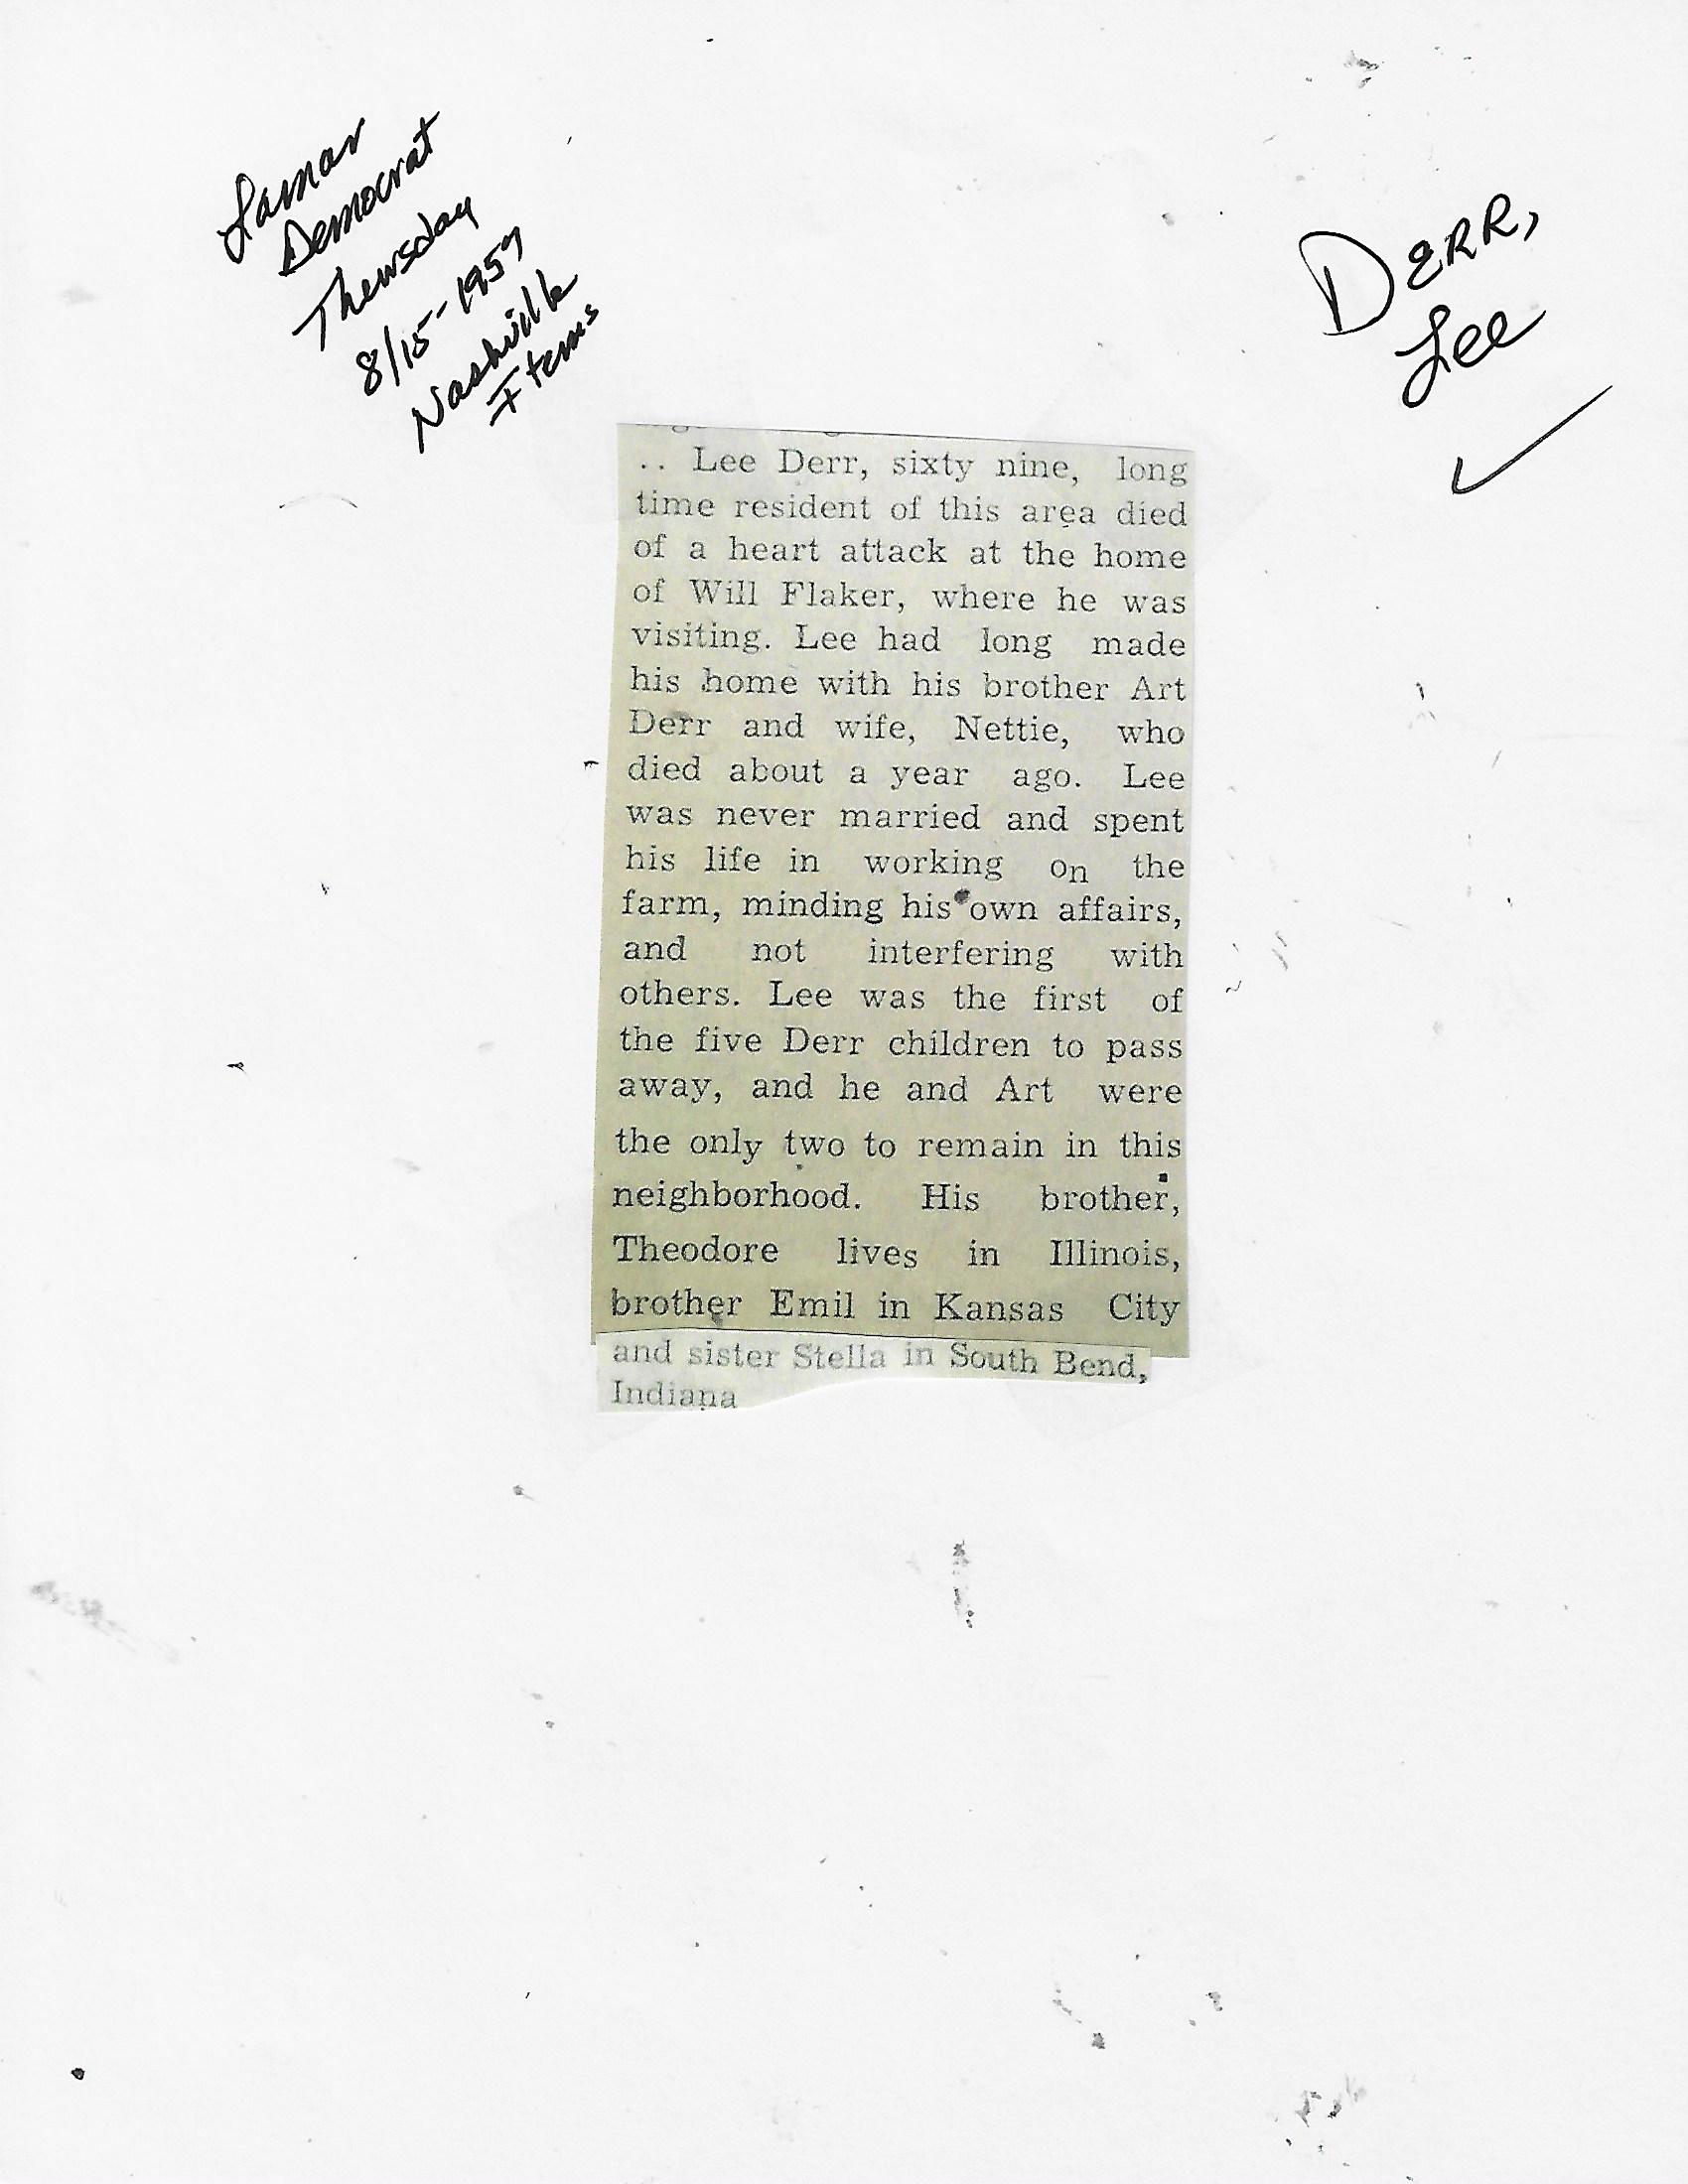 Lamar
Democrat
Thursday
8/15-1957
Nashville
Items
DERR,
Lee
.. Lee Derr, sixty nine, long
time resident of this area died
of a heart attack at the home
of Will Flaker, where he was
visiting. Lee had long made
his home with his brother Art
Derr and wife, Nettie, who
died about a year ago. Lee
was never married and spent
his life in working on the
farm, minding his own affairs,
and not interfering with
others. Lee was the first of
the five Derr children to pass
away, and he and Art were
the only two to remain in this
neighborhood. His brother,
Theodore lives in Illinois,
brother Emil in Kansas City
and sister Stella in South Bend,
Indiana